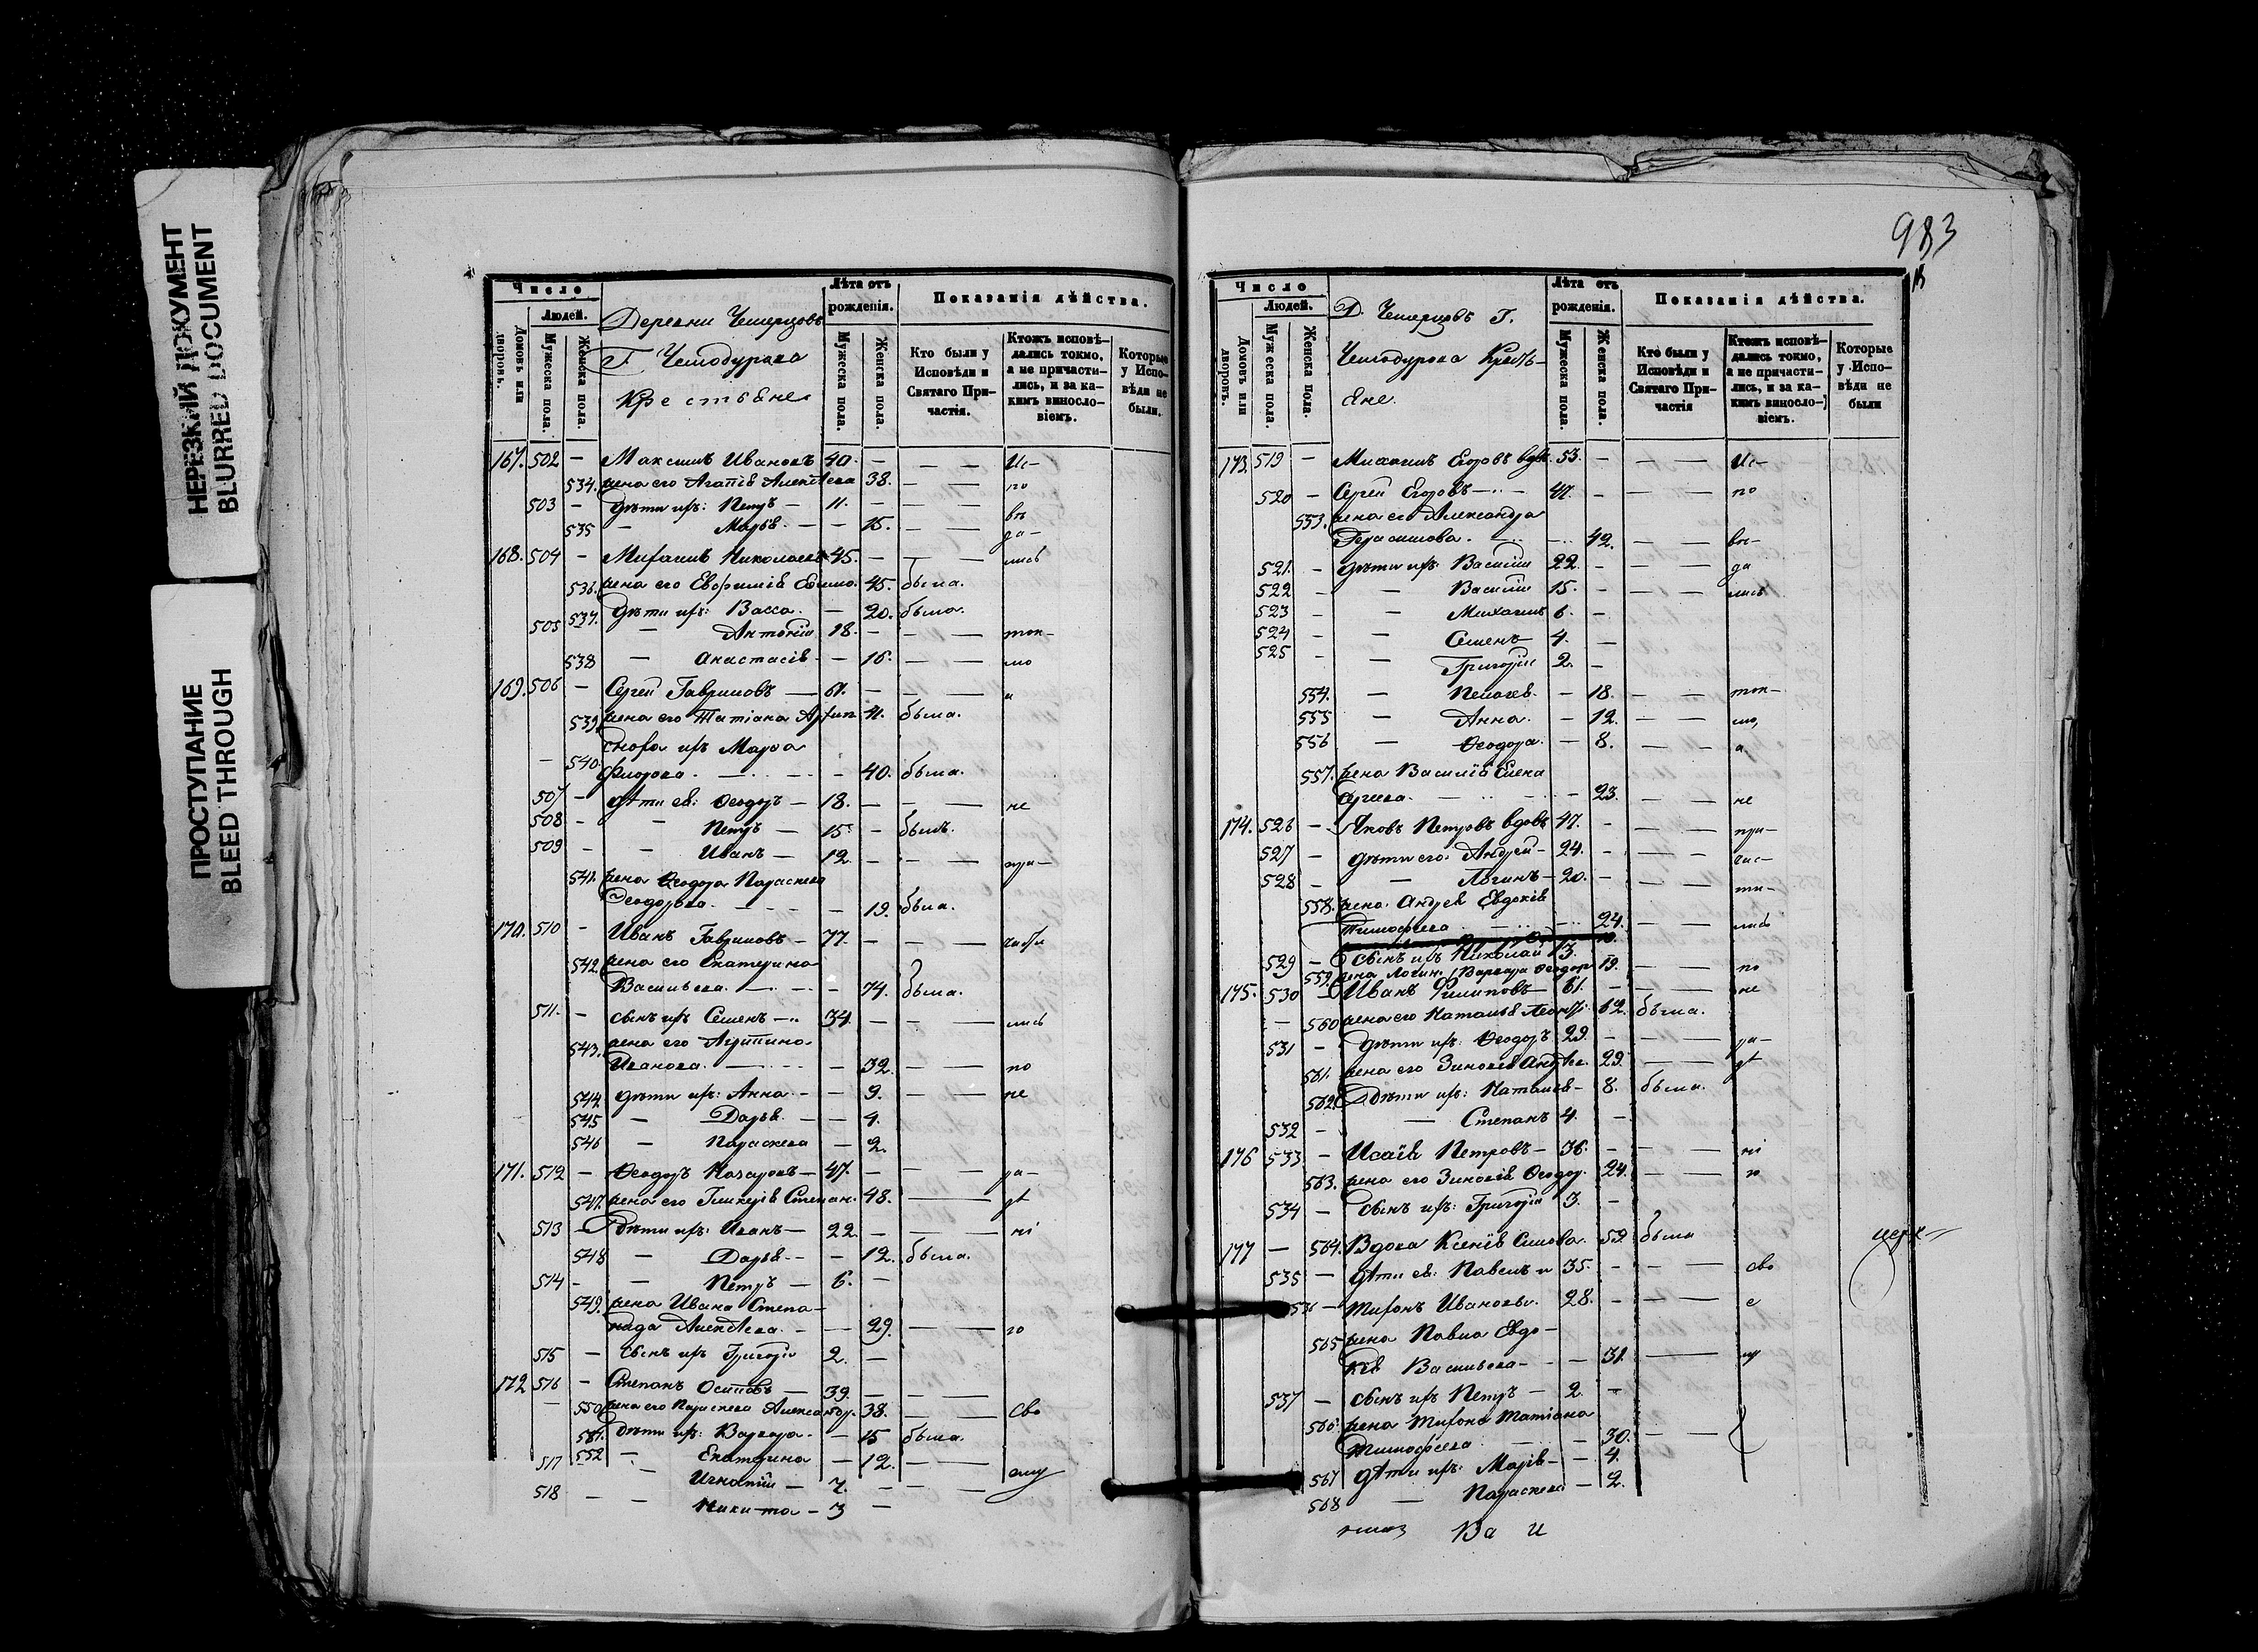 НЕРЕЗКИЙ ДОКУМЕНТ
BLURRED DOCUMENT
ПРОСТУПАНИЕ
BLEED THROUGH
Число
Домовъ или дворовъ.
Людей.
Мужеска пола.
Женска пола.
Деревни Чеперцовъ
Г. Чемодурова
Крестьяне
Лѣта отъ рожденія.
Мужеска пола.
Женска пола.
Показанія дѣйства.
Кто были у Исповѣди и Святаго Причастія.
Ктожъ исповѣдались токмо, а не причастились, и за какимъ винословіемъ.
Которые у Исповѣди не были.
167. 502 — Максимъ Ивановъ 40. — — — Ис-
534. жена его Агапія Алексѣева 38. — — по
503 — дѣти ихъ: Петръ — 11. — — — вѣ
535 — Марья — — 15. — — да-
168. 504 — Михаилъ Николаевъ 45. — — — лись
536. жена его Евфимія 45. была.
537. дѣти ихъ: Васса. — 20. была.
505 — Антоній 18. — — — ток-
538 — Анастасія — 16. — — мо
169. 506 — Сергей Гавриловъ — 61. — — — а
539. жена его Татіана 41. была.
— 540. сноха ихъ Марѳа
— 40. была.
507 — дѣти ея: Ѳеодоръ — 18. — — — не
508 — — Петръ — 15. — былъ.
509 — — Иванъ — 12 — — — при-
541. жена Ѳеодора Параскева
Ѳеодорова. — 19. была.
170. 510 — Иванъ Гавриловъ — 77. — — —
542. жена его Екатерина
Васильева. — 74. была.
511. — сынъ ихъ Семенъ — 34. — — — лись
543. жена его
Иванова. — 32. — — по
544. дѣти ихъ: Анна. — — 9. — — не
545 — Дарья — — 4.
546 — Параскева — 2.
171. 512 — Ѳеодоръ Назаровъ — 47. — — — ра-
547. жена его Гликерія Степан. 48. — — дѣ
513 — дѣти ихъ: Иванъ — 22. — — — ні
548 — Дарья — — 12. была.
514 — — Петръ — 6. —
549. жена Ивана Степа-
нида Алексѣева. — 29. — — го
515 — сынъ ихъ Григорій 2. —
172 516 — Степанъ Осиповъ — 39. — — —
550. жена его Параскева Александр. 38. — — сво
551. дѣти ихъ: Варвара. — 15 была.
552 — Екатерина — 12. — —
517 — Игнатій — 7. — — — ему
518 — — Никита — 3 —
983
Число
Домовъ или дворовъ.
Людей.
Мужеска пола.
Женска пола.
Д. Чеперцовъ Г.
Чемодурова Кресть-
яне.
Лѣта отъ рожденія.
Мужеска пола.
Женска пола.
Показанія дѣйства.
Кто были у Исповѣди и Святаго Причастія
Ктожъ исповѣдались токмо, а не причастились, и за какимъ винословіемъ.
Которые у Исповѣди не были
173. 519 — Михаилъ Егоровъ вдов. 53. — — — Ис-
520 — Сергей Егоровъ — 47. — — — по
553. жена его Александра
Герасимова. — 42. — — вѣ-
521. — дѣти ихъ: Василій 22. — — — да
522 — — Василій 15. — — — лись
523 — — Михаилъ 6. —
524 — — Семенъ 4. —
525 — — Григорій 2. —
554. — Пелагея. — 18. — — ток-
555 — Анна. — 12. — — мо,
556 — Ѳеодора. — 8. — — а
557. жена Василія Елена
Сергеева. — 23. — — не
174. 526 — Яковъ Петровъ вдовъ 47. — — — при-
527 — дѣти его: Андрей — 24. — — — час-
528 — — Логинъ — 20. — — — ти-
558. жена Андрея Евдокія
Тимофеева — 24. — — лись
529 — сынъ ихъ Николай 3.
559. жена Логина Варвара Ѳеодор. 19. — — по
175. 530 — Иванъ Филиповъ — 61. — — — не
— 560 жена его Наталья 62. была.
531 — дѣти ихъ: Ѳеодоръ 29. — — — ра-
561. жена его Зиновія Андрѣев. 29. — — дѣ
562. дѣти ихъ: Наталія — 8. была.
532 — — Степанъ 4. —
176 533 — Исаія Петровъ — 36. — — — ні
563. жена его Зиновія Ѳеодор. 24. — — ю
534 — сынъ ихъ: Григорій 3. —
177 — 564. Вдова Ксенія 59. была
535 — дѣти ея: Павелъ и 35. — — — сво
536 — Тихонъ Ивановы. 28. — — — е
565 жена Павла Евдо-
кія Васильева — — 31. — — му
537 — сынъ ихъ Петръ — 2 —
566. жена Тихона Татіана
Тимофеева — 30. — —
567 дѣти ихъ: Марія — — 4.
568 — Параскева — 2.